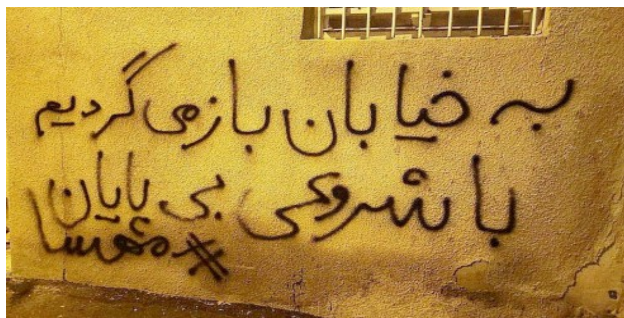 به خیابان بازمی گردیم
با شروعی بی پایان
#مهسا